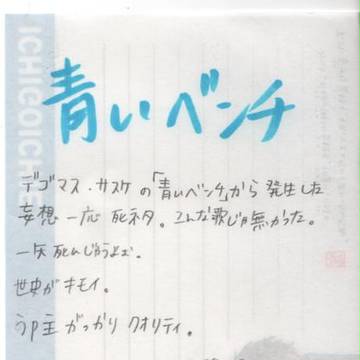 ICHIGOICHE
青いベンチ
テゴマス・サスケの「青いベンチ」から発生した
妄想 一応 死ネタ。こんな歌じゃ無かった。
世史がキモイ。
うp主 がっかり クオリティ。